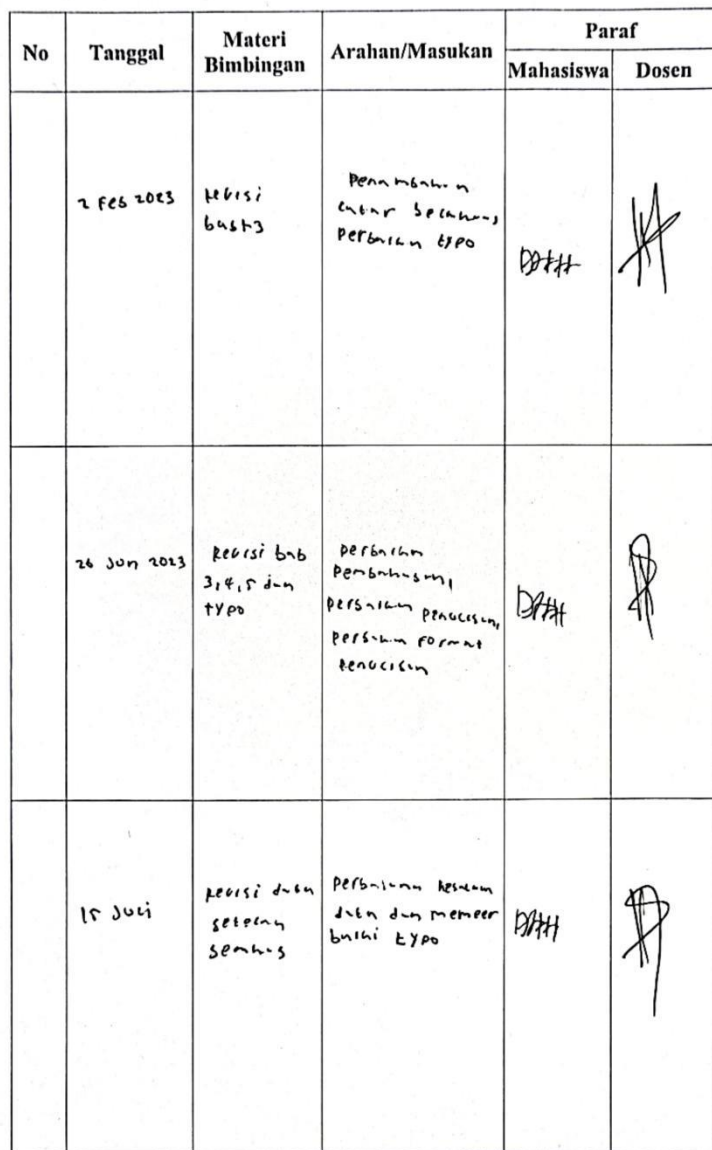 No Tanggal Materi Bimbingan Arahan/Masukan Paraf
Mahasiswa Dosen
2 Feb 2023
revisi
bab 3
Penambahan
latar belakang,
perbaikan typo
26 Jun 2023
Revisi bab
3,4,5 dan
typo
perbaikan
pembahasan,
perbaikan penulisan,
perbaikan format
penulisan
15 Juli
revisi data
setelah
semhas
Perbaikan
data dan memper
baiki typo